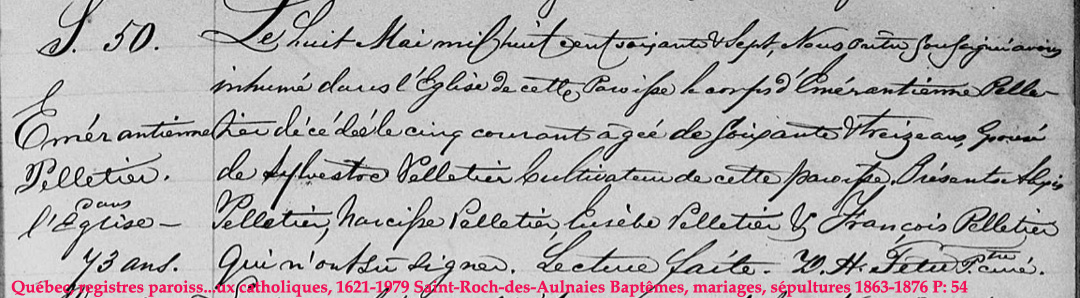 S. 50.
Emérantienne
Pelletier.
dans
l'Eglise —
73 ans.
Le huit Mai mil huit cent soixante & sept, Nous prêtre soussigné avons
inhumé dans l'Eglise de cette Paroisse le corps d'Emérantienne Pelle-
tier décédée le cinq courant agée de soixante & treize ans, Epouse
de Sylvestre Pelletier Cultivateur de cette paroisse. Présents
Pelletier, Narcisse Pelletier, Eusèbe Pelletier & François Pelletier
qui n'ont su signer. Lecture faite. D. H. Têtu Ptre curé.
Québec, registres paroiss...ux catholiques, 1621-1979 Saint-Roch-des-Aulnaies Baptêmes, mariages, sépultures 1863-1876 P: 54